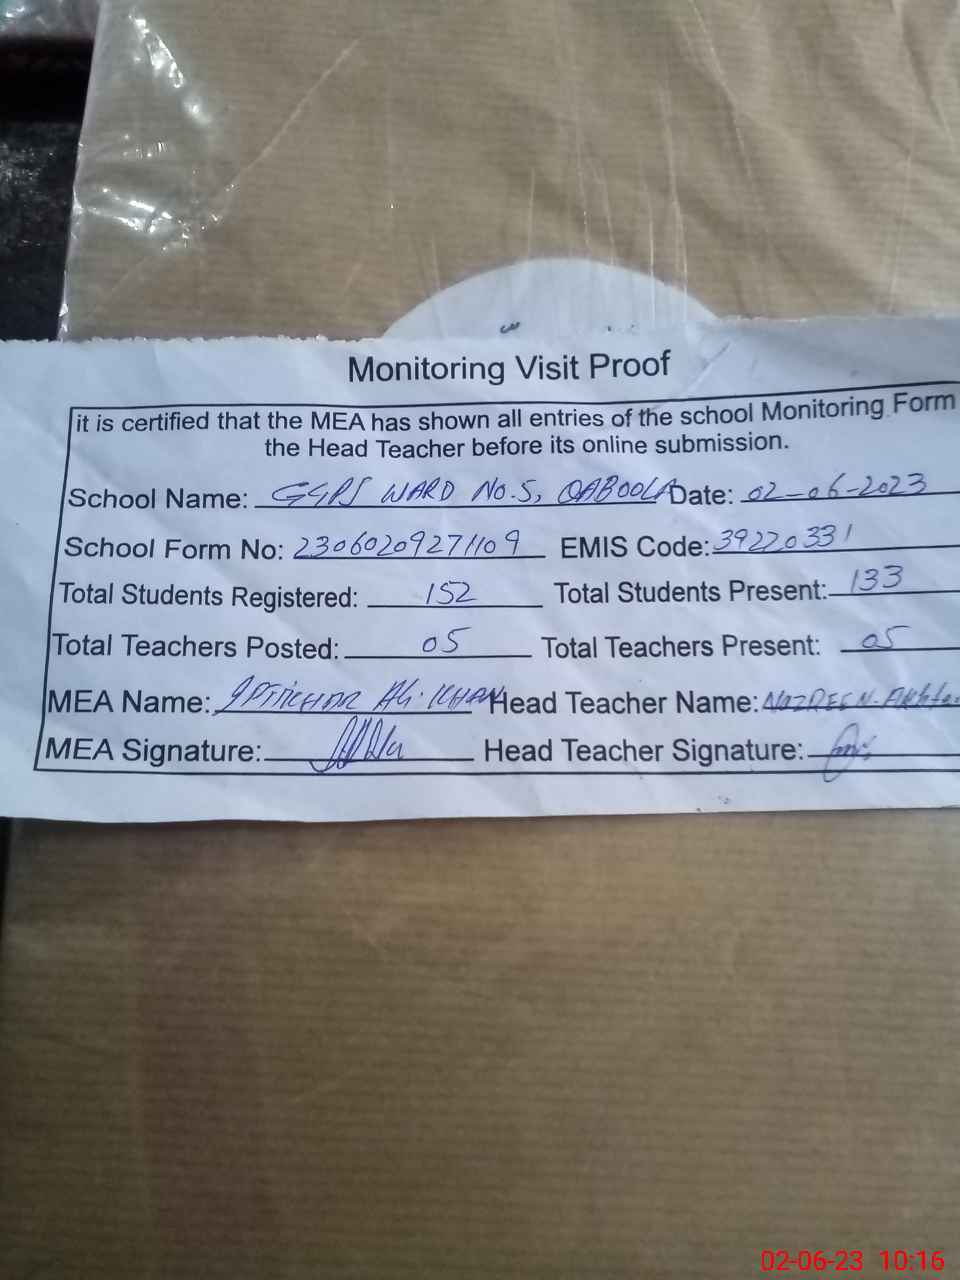 Monitoring Visit Proof
it is certified that the MEA has shown all entries of the school Monitoring Form
the Head Teacher before its online submission.
School Name: GGPS WARD No.5, QABOOLA Date: 02-06-2023
School Form No: 23060209271109 EMIS Code: 39220331
Total Students Registered: 152 Total Students Present: 133
Total Teachers Posted: 05 Total Teachers Present: 05
MEA Name: IFTIKHAR Ali KHAN Head Teacher Name: Akhtar
MEA Signature: Head Teacher Signature:
02-06-23 10:16